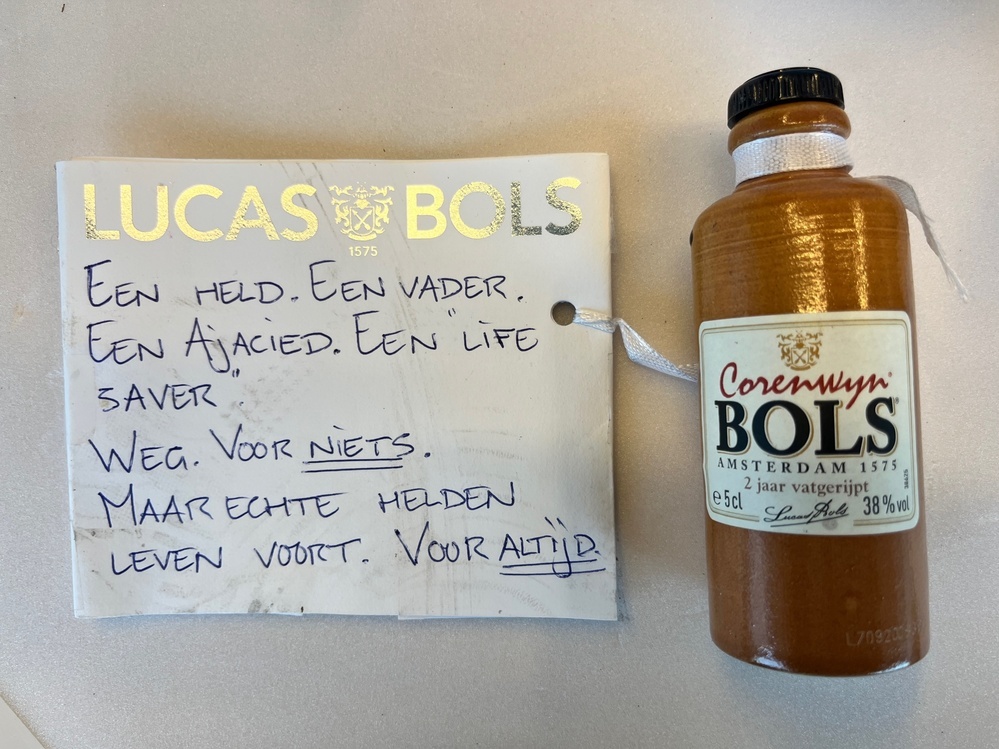 LUCAS BOLS
1575
EEN HELD. EEN VADER.
EEN AJACIED. EEN "LIFE
SAVER".
WEG. VOOR NIETS.
MAAR ECHTE HELDEN
LEVEN VOORT. VOOR ALTIJD.
Corenwyn®
BOLS®
AMSTERDAM 1575
2 jaar vatgerijpt
e 5cl
Lucas Bols
38% vol